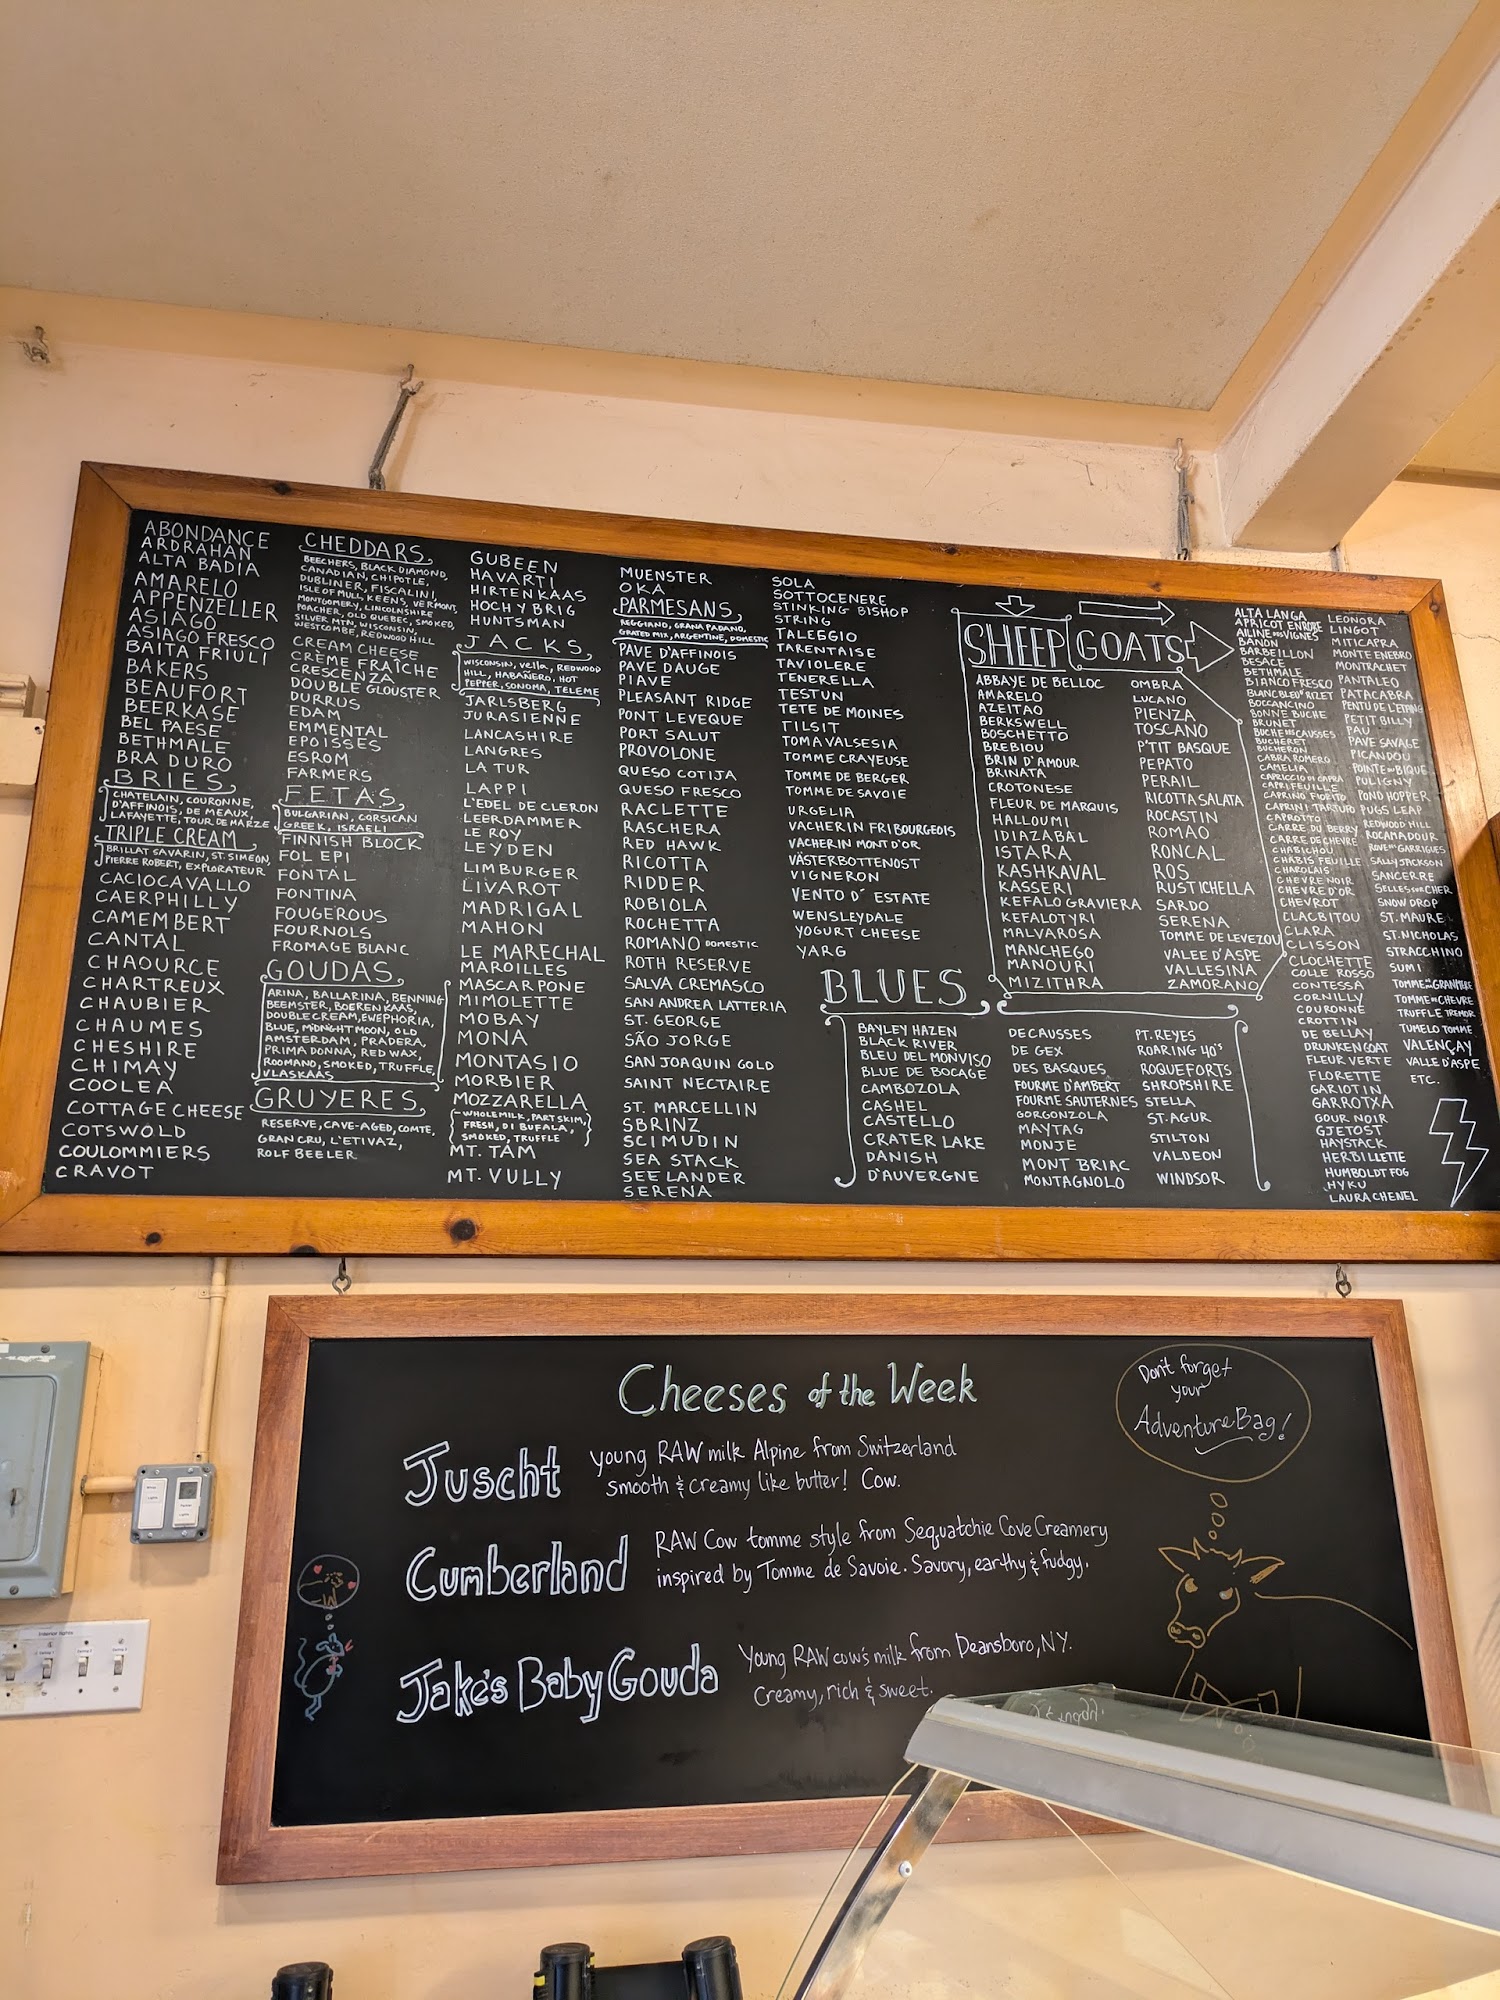 ABONDANCE
ARDRAHAN
ALTA BADIA
AMARELO
APPENZELLER
ASIAGO
ASIAGO FRESCO
BAITA FRIULI
BAKERS
BEAUFORT
BEERKASE
BEL PAESE
BETHMALE
BRA DURO
BRIES
CHATELAIN, COURONNE,
D'AFFINOIS, DE MEAUX,
LAFAYETTE, TOUR DE MARZE
TRIPLE CREAM
BRILLAT SAVARIN, ST. SIMEON,
PIERRE ROBERT, EXPLORATEUR
CACIOCAVALLO
CAERPHILLY
CAMEMBERT
CANTAL
CHAOURCE
CHARTREUX
CHAUBIER
CHAUMES
CHESHIRE
CHIMAY
COOLEA
COTTAGE CHEESE
COTSWOLD
COULOMMIERS
CRAVOT
CHEDDARS
BEECHERS, BLACK DIAMOND,
CANADIAN, CHIPOTLE,
DUBLINER, FISCALINI,
ISLE OF MULL, KEENS, VERMONT,
MONTGOMERY, LINCOLNSHIRE
POACHER, OLD QUEBEC, SMOKED,
SILVER MTN, WISCONSIN,
WESTCOMBE, REDWOOD HILL
CREAM CHEESE
CRÈME FRAÎCHE
CRESCENZA
DOUBLE GLOUSTER
DURRUS
EDAM
EMMENTAL
EPOISSES
ESROM
FARMERS
FETAS
BULGARIAN, CORSICAN
GREEK, ISRAELI
FINNISH BLOCK
FOL EPI
FONTAL
FONTINA
FOUGEROUS
FOURNOLS
FROMAGE BLANC
GOUDAS
ARINA, BALLARINA, BENNING
BEEMSTER, BOERENKAAS,
DOUBLE CREAM, EWEPHORIA,
BLUE, MIDNGHT MOON, OLD
AMSTERDAM, PRADERA,
PRIMA DONNA, RED WAX,
ROOMANO, SMOKED, TRUFFLE,
VLASKAAS
GRUYERES
RESERVE, CAVE-AGED, COMTE,
GRAN CRU, L'ETIVAZ,
ROLF BEELER
GUBEEN
HAVARTI
HIRTENKAAS
HOCH YBRIG
HUNTSMAN
JACKS
WISCONSIN, Vella, REDWOOD
HILL, HABAÑERO, HOT
PEPPER, SONOMA, TELEME
JARLSBERG
JURASIENNE
LANCASHIRE
LANGRES
LA TUR
LAPPI
L'EDEL DE CLERON
LEERDAMMER
LE ROY
LEYDEN
LIMBURGER
LIVAROT
MADRIGAL
MAHON
LE MARECHAL
MAROILLES
MASCARPONE
MIMOLETTE
MOBAY
MONA
MONTASIO
MORBIER
MOZZARELLA
WHOLE MILK, PART SKIM,
FRESH, DI BUFALA,
SMOKED, TRUFFLE
MT. TAM
MT. VULLY
MUENSTER
OKA
PARMESANS
REGGIANO, GRANA PADANO,
GRATED MIX, ARGENTINE, DOMESTIC
PAVE D'AFFINOIS
PAVE DAUGE
PIAVE
PLEASANT RIDGE
PONT LEVEQUE
PORT SALUT
PROVOLONE
QUESO COTIJA
QUESO FRESCO
RACLETTE
RASCHERA
RED HAWK
RICOTTA
RIDDER
ROBIOLA
ROCHETTA
ROMANO DOMESTIC
ROTH RESERVE
SALVA CREMASCO
SAN ANDREA LATTERIA
ST. GEORGE
SÃO JORGE
SAN JOAQUIN GOLD
SAINT NECTAIRE
ST. MARCELLIN
SBRINZ
SCIMUDIN
SEA STACK
SEE LANDER
SERENA
SOLA
SOTTOCENERE
STINKING BISHOP
STRING
TALEGGIO
TARENTAISE
TAVIOLERE
TENERELLA
TESTUN
TETE DE MOINES
TILSIT
TOMA VALSESIA
TOMME CRAYEUSE
TOMME DE BERGER
TOMME DE SAVOIE
URGELIA
VACHERIN FRIBOURGEOIS
VACHERIN MONT D'OR
VÄSTERBOTTENOST
VIGNERON
VENTO D' ESTATE
WENSLEYDALE
YOGURT CHEESE
YARG
BLUES
BAYLEY HAZEN
BLACK RIVER
BLEU DEL MONVISO
BLUE DE BOCAGE
CAMBOZOLA
CASHEL
CASTELLO
CRATER LAKE
DANISH
D'AUVERGNE
DECAUSSES
DE GEX
DES BASQUES
FOURME D'AMBERT
FOURME SAUTERNES
GORGONZOLA
MAYTAG
MONJE
MONT BRIAC
MONTAGNOLO
PT. REYES
ROARING 40'S
ROQUEFORTS
SHROPSHIRE
STELLA
ST. AGUR
STILTON
VALDEON
WINDSOR
SHEEP
ABBAYE DE BELLOC
AMARELO
AZEITAO
BERKSWELL
BOSCHETTO
BREBIOU
BRIN D'AMOUR
BRINATA
CROTONESE
FLEUR DE MARQUIS
HALLOUMI
IDIAZABAL
ISTARA
KASHKAVAL
KASSERI
KEFALOGRAVIERA
KEFALOTYRI
MALVAROSA
MANCHEGO
MANOURI
MIZITHRA
OMBRA
LUCANO
PIENZA
TOSCANO
P'TIT BASQUE
PEPATO
PERAIL
RICOTTA SALATA
ROCASTIN
ROMAO
RONCAL
ROS
RUSTICHELLA
SARDO
SERENA
TOMME DE LEVEZOU
VALEE D'ASPE
VALLESINA
ZAMORANO
GOATS
ALTA LANGA
BANON
BARBEILLON
BESACE
BETHMALE
BIANCO FRESCO
BOCCANCINO
BONNE BUCHE
BRUNET
BUCHERET
BUCHERON
CABRA ROMERO
CAMELIA
CAPRICCIO DI CAPRA
CAPRIFEUILLE
CAPRINI TARTUFO
CAPROTTO
CARRE DU BERRY
CARRE DE CHEVRE
CHABICHOU
CHABIS FEUILLE
CHAROLAIS
CHEVRE NOIR
CHEVRE D'OR
CHEVROT
CLACBITOU
CLARA
CLISSON
CLOCHETTE
COLLE ROSSO
CONTESSA
CORNILLY
COURONNE
CROTTIN
DE BELLAY
DRUNKEN GOAT
FLEUR VERTE
FLORETTE
GARIOTIN
GARROTXA
GOUR NOIR
GJETOST
HAYSTACK
HERBILLETTE
HUMBOLDT FOG
HYKU
LAURA CHENEL
LEONORA
LINGOT
MITICAPRA
MONTE ENEBRO
MONTRACHET
PANTALEO
PATACABRA
PETIT BILLY
PAU
PAVE SAVAGE
PICANDOU
PULIGNY
POND HOPPER
PUGS LEAP
REDWOOD HILL
ROCAMADOUR
SALLY JACKSON
SANCERRE
SELLES SUR CHER
SNOW DROP
ST. MAURE
ST. NICHOLAS
STRACCHINO
SUMI
TRUFFLE TREMOR
TUMELO TOMME
VALENÇAY
VALLE D'ASPE
ETC.
Cheeses of the Week
Juscht young RAW milk Alpine from Switzerland
smooth & creamy like butter! Cow.
Cumberland RAW Cow tomme style from Sequatchie Cove Creamery
inspired by Tomme de Savoie. Savory, earthy & fudgy.
Jake's Baby Gouda Young RAW cow's milk from Deansboro, NY.
Creamy, rich & sweet.
Don't forget
your
Adventure Bag!